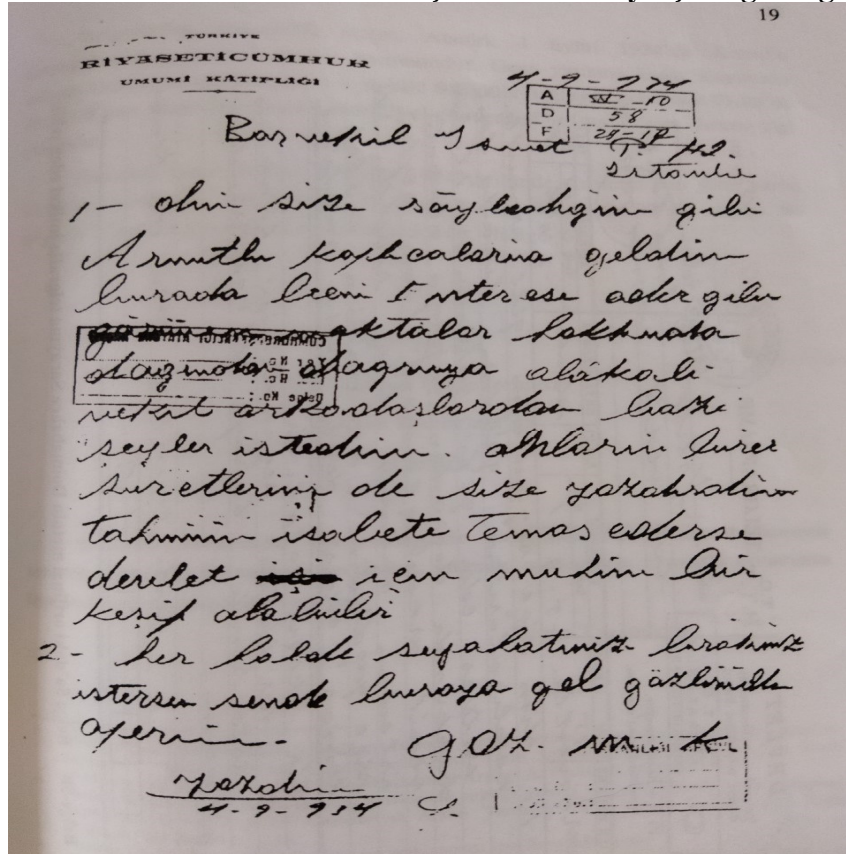 19
TÜRKİYE
RİYASETİCÜMHUR
UMUMİ KÂTİPLİĞİ
4-9-934
A
D 58
F 29-17
Başvekil İsmet
1- dün size söylediğim gibi
Armutlu kaplıcalarına geldim
burada beni interese eder gibi
noktalar hakkında
doğruya alâkalı
vekil arkadaşlardan bazı
şeyler istedim. onların birer
suretlerini de size yazdırdım
tahminim isabete temas ederse
devlet için mühim bir
keşif olabilir
2- her halde seyahatiniz
istersen sende buraya gel gözlerinden
öperim.
Gaz. M. K
yazdım
4-9-934